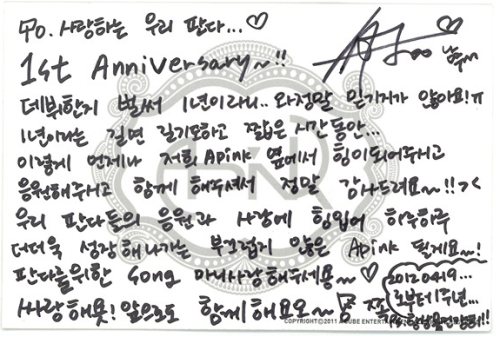 To. 사랑하는 우리 판다...♡
1st Anniversary~!!
데뷔한지 벌써 1년이라니.. 와 정말 믿기지가 않아요!ㅠ
1년이라는 길면 길기도하고 짧은 시간동안...
이렇게 언제나 저희 Apink 옆에서 힘이되어주시고
응원해주시고 함께 해주셔서 정말 감사드려요~!! >.<
우리 판다들의 응원과 사랑에 힘입어 하루하루
더더욱 성장해나가는 부끄럽지 않은 Apink 될게요~!
판다를위한 Song 마니사랑해주세용~♡
싸랑해욧! 앞으로도 함께해요오~
20120419...
1주년...
COPYRIGHT©2011 A CUBE ENTERTAINMENT